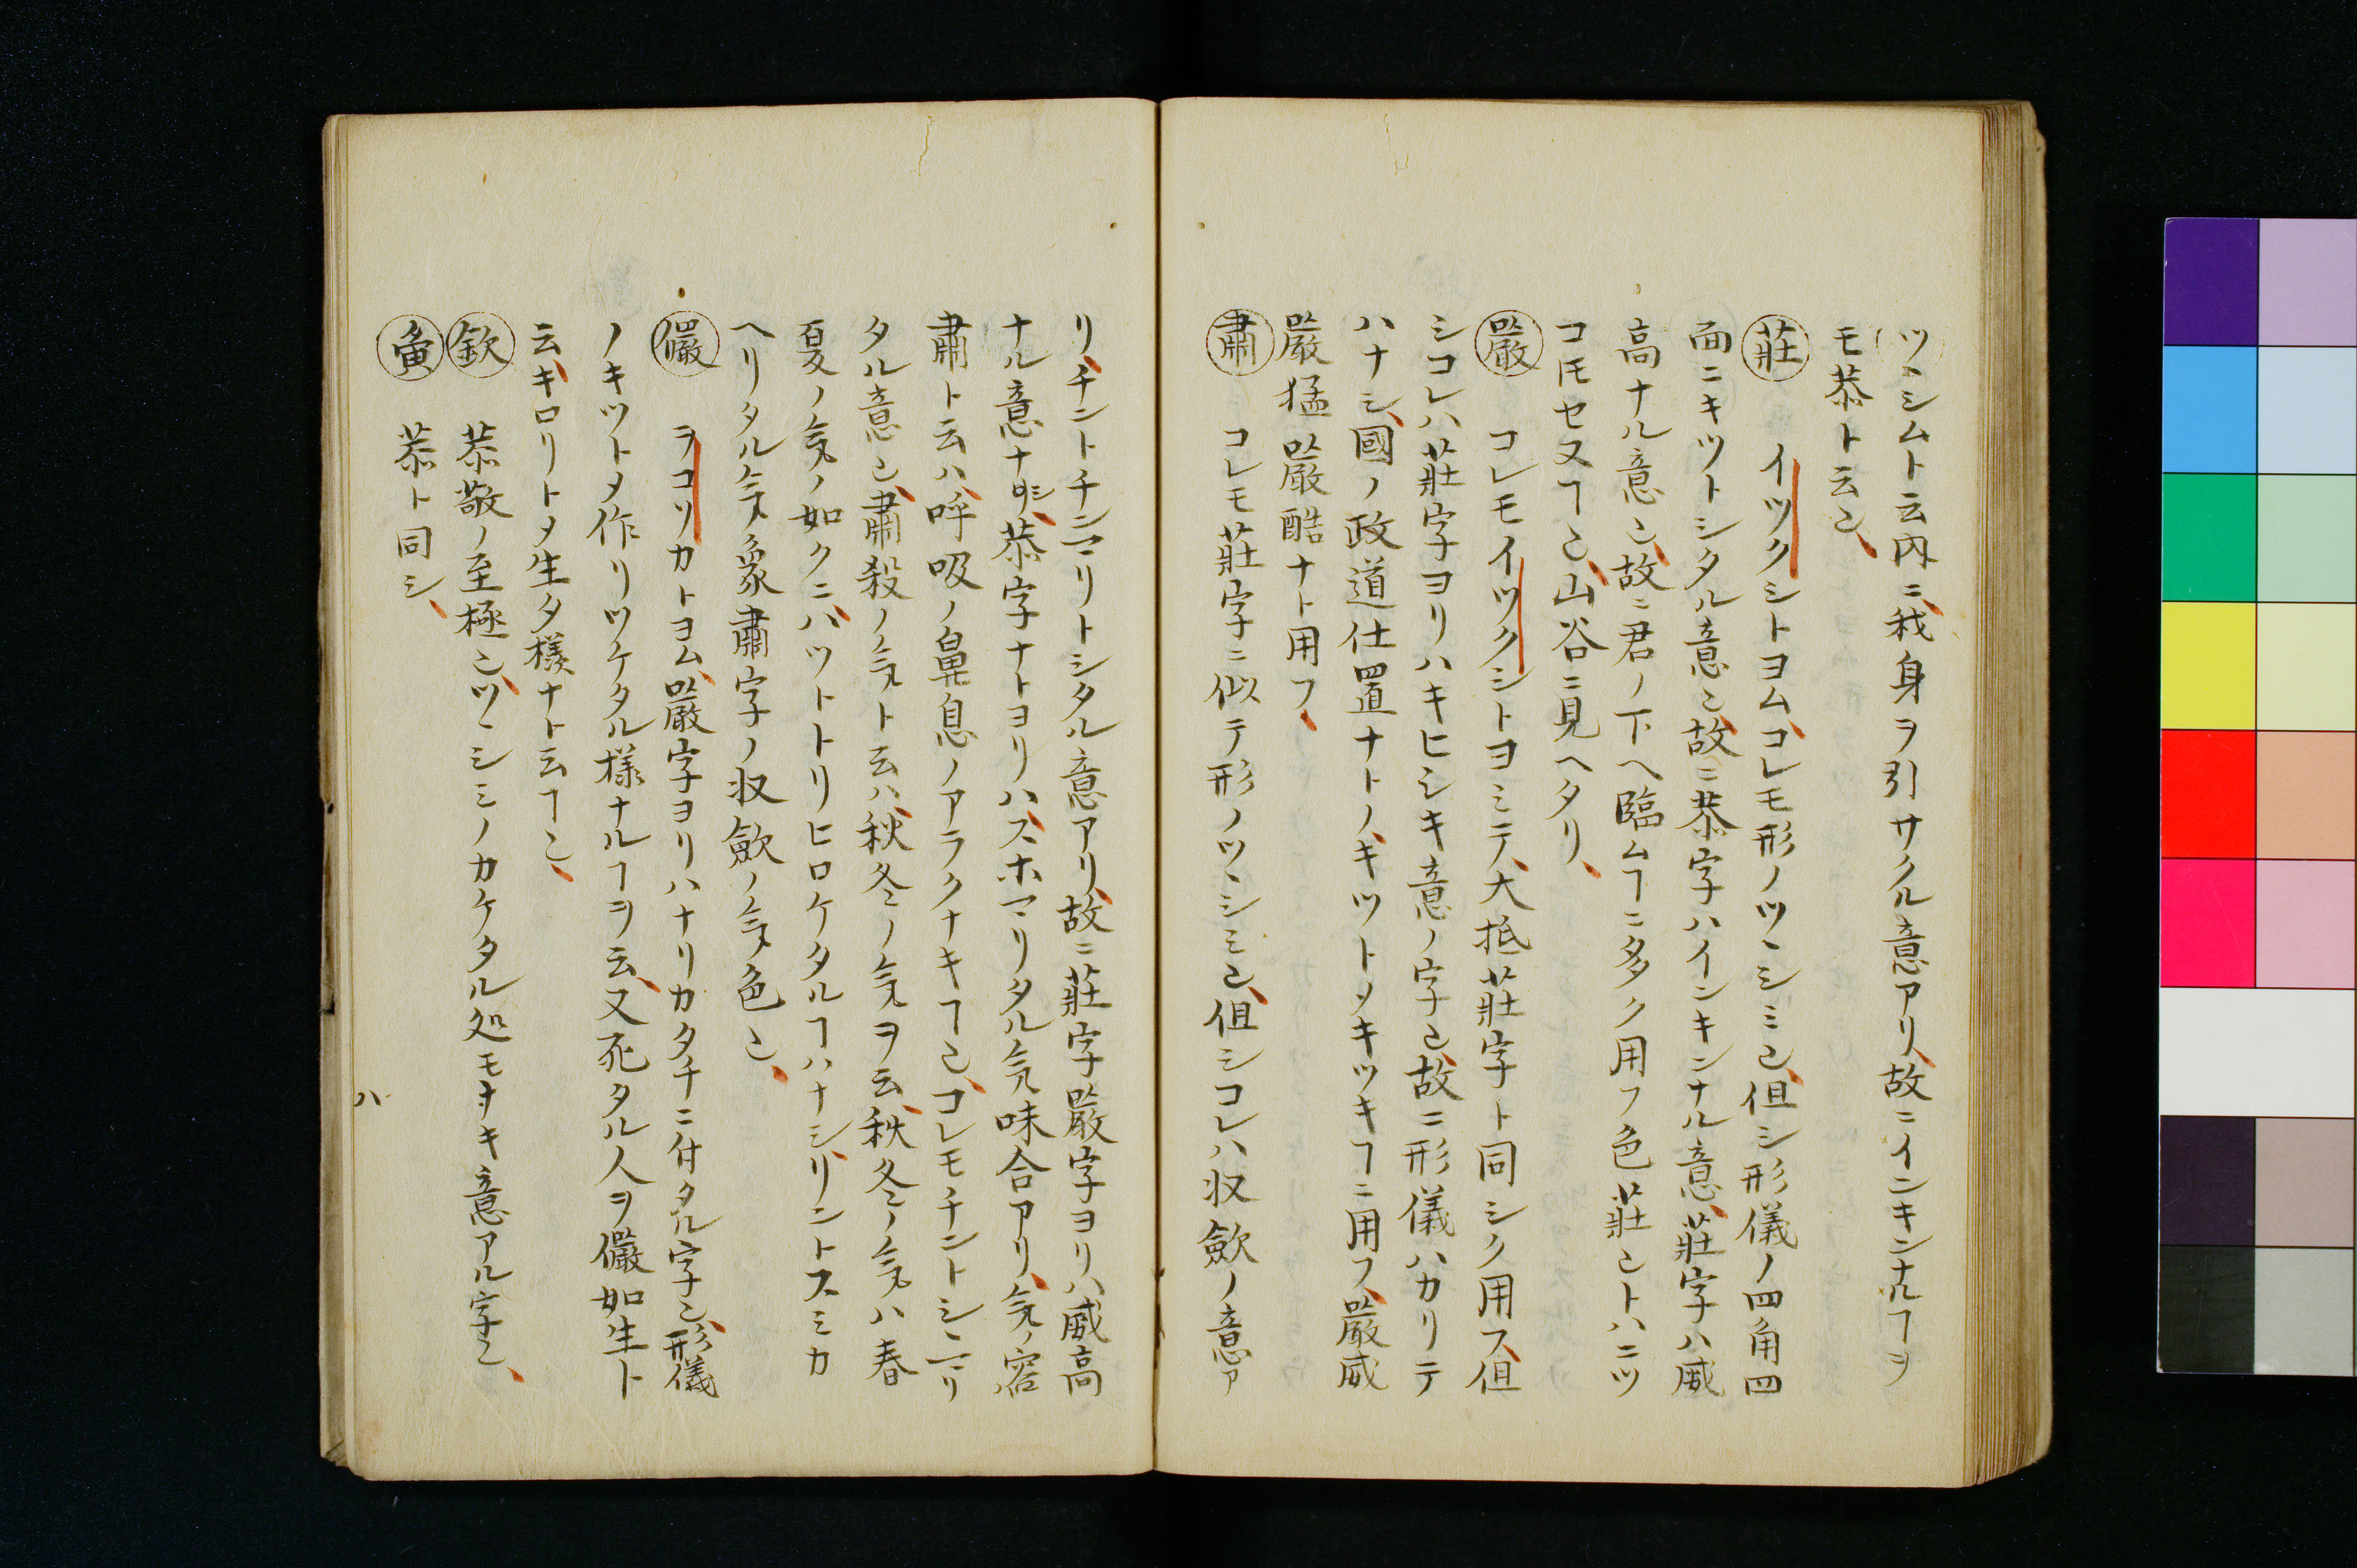 ツヽシムト云内ニ我身ヲ引サクル意アリ、故ニインキンナルヿヲ
モ恭ト云也、
莊　イツクシトヨム、コレモ形ノツヽシミ也、但シ形儀ノ四角四
面ニキツトシタル意也、故ニ恭字ハインキンナル意、莊字ハ威
高ナル意也、故ニ君ノ下ヘ臨ムヿニ多ク用フ、色莊也トハニツ
コトモセヌヿ也、山谷ニ見ヘタリ、
嚴　コレモイツクシトヨミテ、大抵莊字ト同シク用ス、但
シコレハ莊字ヨリハキヒシキ意ノ字也、故ニ形儀ハカリテ
ハナシ、國ノ政道仕置ナトノ、キツトメキツキヿニ用フ、嚴威
嚴猛嚴酷ナト用フ、
肅　コレモ莊字ニ似テ形ノツヽシミ也、但シコレハ収斂ノ意ア
リ、チントチヽマリトシタル意アリ、故ニ莊字嚴字ヨリハ威高
ナル意ナシ、恭字ナトヨリハ、スホマリタル気味合アリ、気ノ容
肅ト云ハ、呼吸ノ鼻息ノアラクナキヿ也、コレモチントシヽマリ
タル意也、肅殺ノ気ト云ハ、秋冬ノ気ヲ云、秋冬ノ気ハ春
夏ノ気ノ如クニ、ハツトトリヒロケタルヿハナシ、リントスミカ
ヘリタル気象肅字ノ収斂ノ気色也、
儼　ヲコリカトヨム、嚴字ヨリハナリカタチニ付タル字也、形儀
ノキツトメ作リツケタル様ナルヿヲ云、又死タル人ヲ儼如生ト
云、キロリトメ生タ様ナト云ヿ也、
欽　恭敬ノ至極也、ツヽシミノカケタル処モナキ意アル字也、
夤　恭ト同シ、
ハ